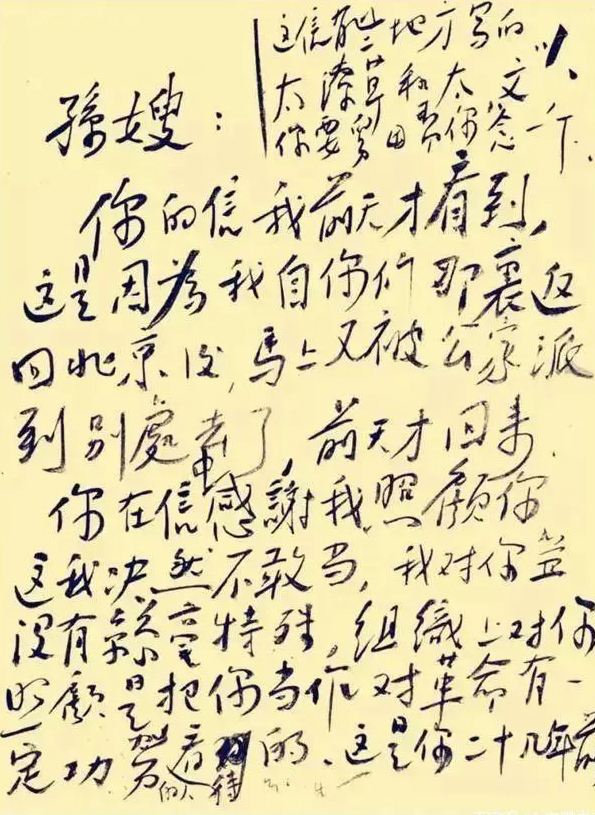 这信有些地方写的
太潦草和太文
你要 你念一下.
孫嫂：
你的信我前天才看到，
这是因為我自你们那裏返
回北京后，馬上又被公家派
到别處去了，前天才回来.
你在信中感謝我照顧你
这我决然不敢当，我对你並
没有絲毫特殊，组織上对你
照顧是把你当作对革命有一
定功劳的人看待的、这是你二十几年前